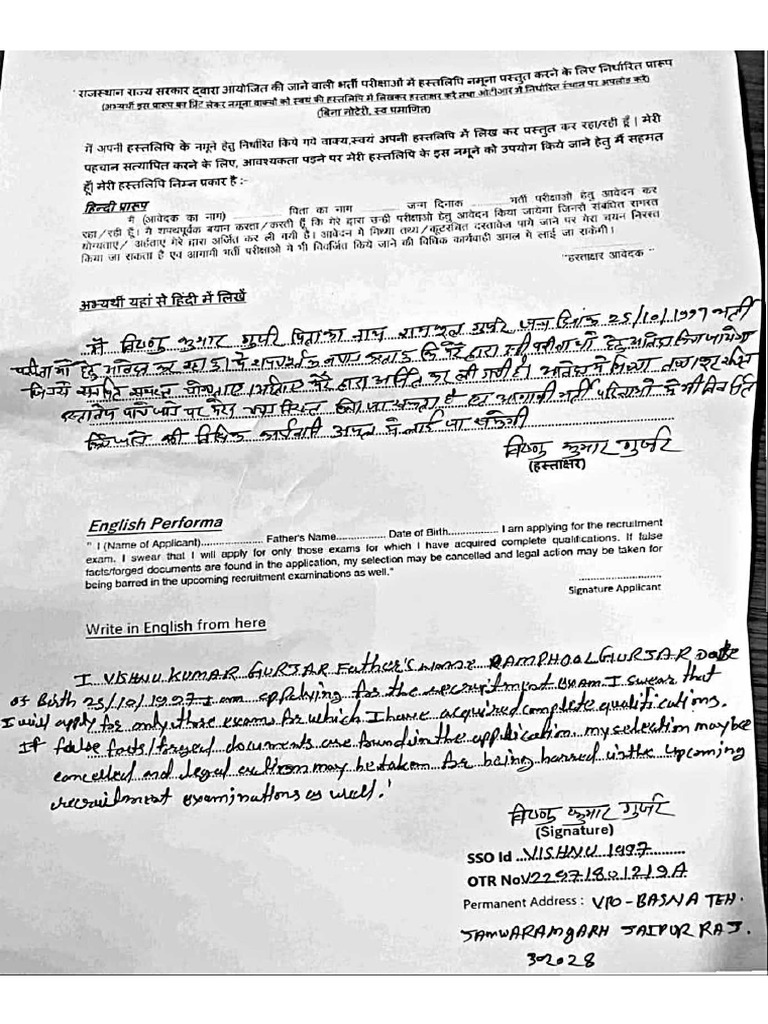 " राजस्थान राज्य सरकार द्वारा आयोजित की जाने वाली भर्ती परीक्षाओं में हस्तलिपि नमूना प्रस्तुत करने के लिए निर्धारित प्रारूप
(अभ्यर्थी इस प्रारूप का प्रिंट लेकर नमूना वाक्यो को स्वयं की हस्तलिपि में लिखकर हस्ताक्षर करे तथा ओटीआर में निर्धारित स्थान पर अपलोड करे)
(बिना नोटेरी, स्व प्रमाणित)
में अपनी हस्तलिपि के नमूने हेतु निर्धारित किये गये वाक्य,स्वयं अपनी हस्तलिपि में लिख कर प्रस्तुत कर रहा/रही हूँ। मेरी
पहचान सत्यापित करने के लिए, आवश्यकता पड़ने पर मेरी हस्तलिपि के इस नमूने को उपयोग किये जाने हेतु मैं सहमत
हूँ। मेरी हस्तलिपि निम्न प्रकार है :-
हिन्दी प्रारूप
मै (आवेदक का नाम) .............. पिता का नाम .............. जन्म दिनाक .............. भर्ती परीक्षाओ हेतु आवेदन कर
रहा/रही हूँ। मै शपथपूर्वक बयान करता/करती हूँ कि मेरे द्वारा उन्ही परीक्षाओ हेतु आवेदन किया जायेगा जिनसे संबंधित समस्त
योग्यताए/ अर्हताए मेरे द्वारा अर्जित कर ली गयी है। आवेदन मे मिथ्या तथ्य/कूटरचित दस्तावेज पाये जाने पर मेरा चयन निरस्त
किया जा सकता है एव आगामी भर्ती परीक्षाओ मे भी विवर्जित किये जाने की विधिक कार्यवाही अमल मे लाई जा सकेगी।
"हस्ताक्षर आवेदक"
अभ्यर्थी यहां से हिंदी में लिखें
मैं विष्णु कुमार गुर्जर पिता का नाम रामफूल गुर्जर जन्म दिनांक 25/10/1997 भर्ती
परीक्षाओं हेतु आवेदन कर रहा हूं मै शपथपूर्वक बयान करता हूं कि मेरे द्वारा उन्ही परीक्षाओं हेतु आवेदन किया जायेगा
जिनसे संबंधित समस्त योग्यताए/अर्हताए मेरे द्वारा अर्जित कर ली गयी है। आवेदन में मिथ्या तथ्य/कूटरचित
दस्तावेज पाये जाने पर मेरा चयन निरस्त किया जा सकता है एव आगामी भर्ती परीक्षाओ मे भी विवर्जित
किये जाने की विधिक कार्यवाही अमल मे लाई जा सकेगी
विष्णु कुमार गुर्जर
(हस्ताक्षर)
English Performa
" I (Name of Applicant).................. Father's Name.............. Date of Birth.............. I am applying for the recruitment
exam. I swear that I will apply for only those exams for which I have acquired complete qualifications. If false
facts/forged documents are found in the application, my selection may be cancelled and legal action may be taken for
being barred in the upcoming recruitment examinations as well."
Signature Applicant
Write in English from here
I VISHNU KUMAR GURJAR Father's Name RAMPHOOL GURSAR Date
of Birth 25/10/1997 I am applying for the recruitment Exam. I swear that
I will apply for only those exams for which I have acquired complete qualifications.
If false facts/forged documents are found in the application, my selection may be
cancelled and legal action may be taken for being barred in the upcoming
recruitment examinations as well.'
विष्णु कुमार गुर्जर
(Signature)
SSO Id ...VISHNU 1997..........
OTR No V22971801219A
Permanent Address : VPO-BASNA TEH.
JAMWARAMGARH JAIPUR RAJ.
302028